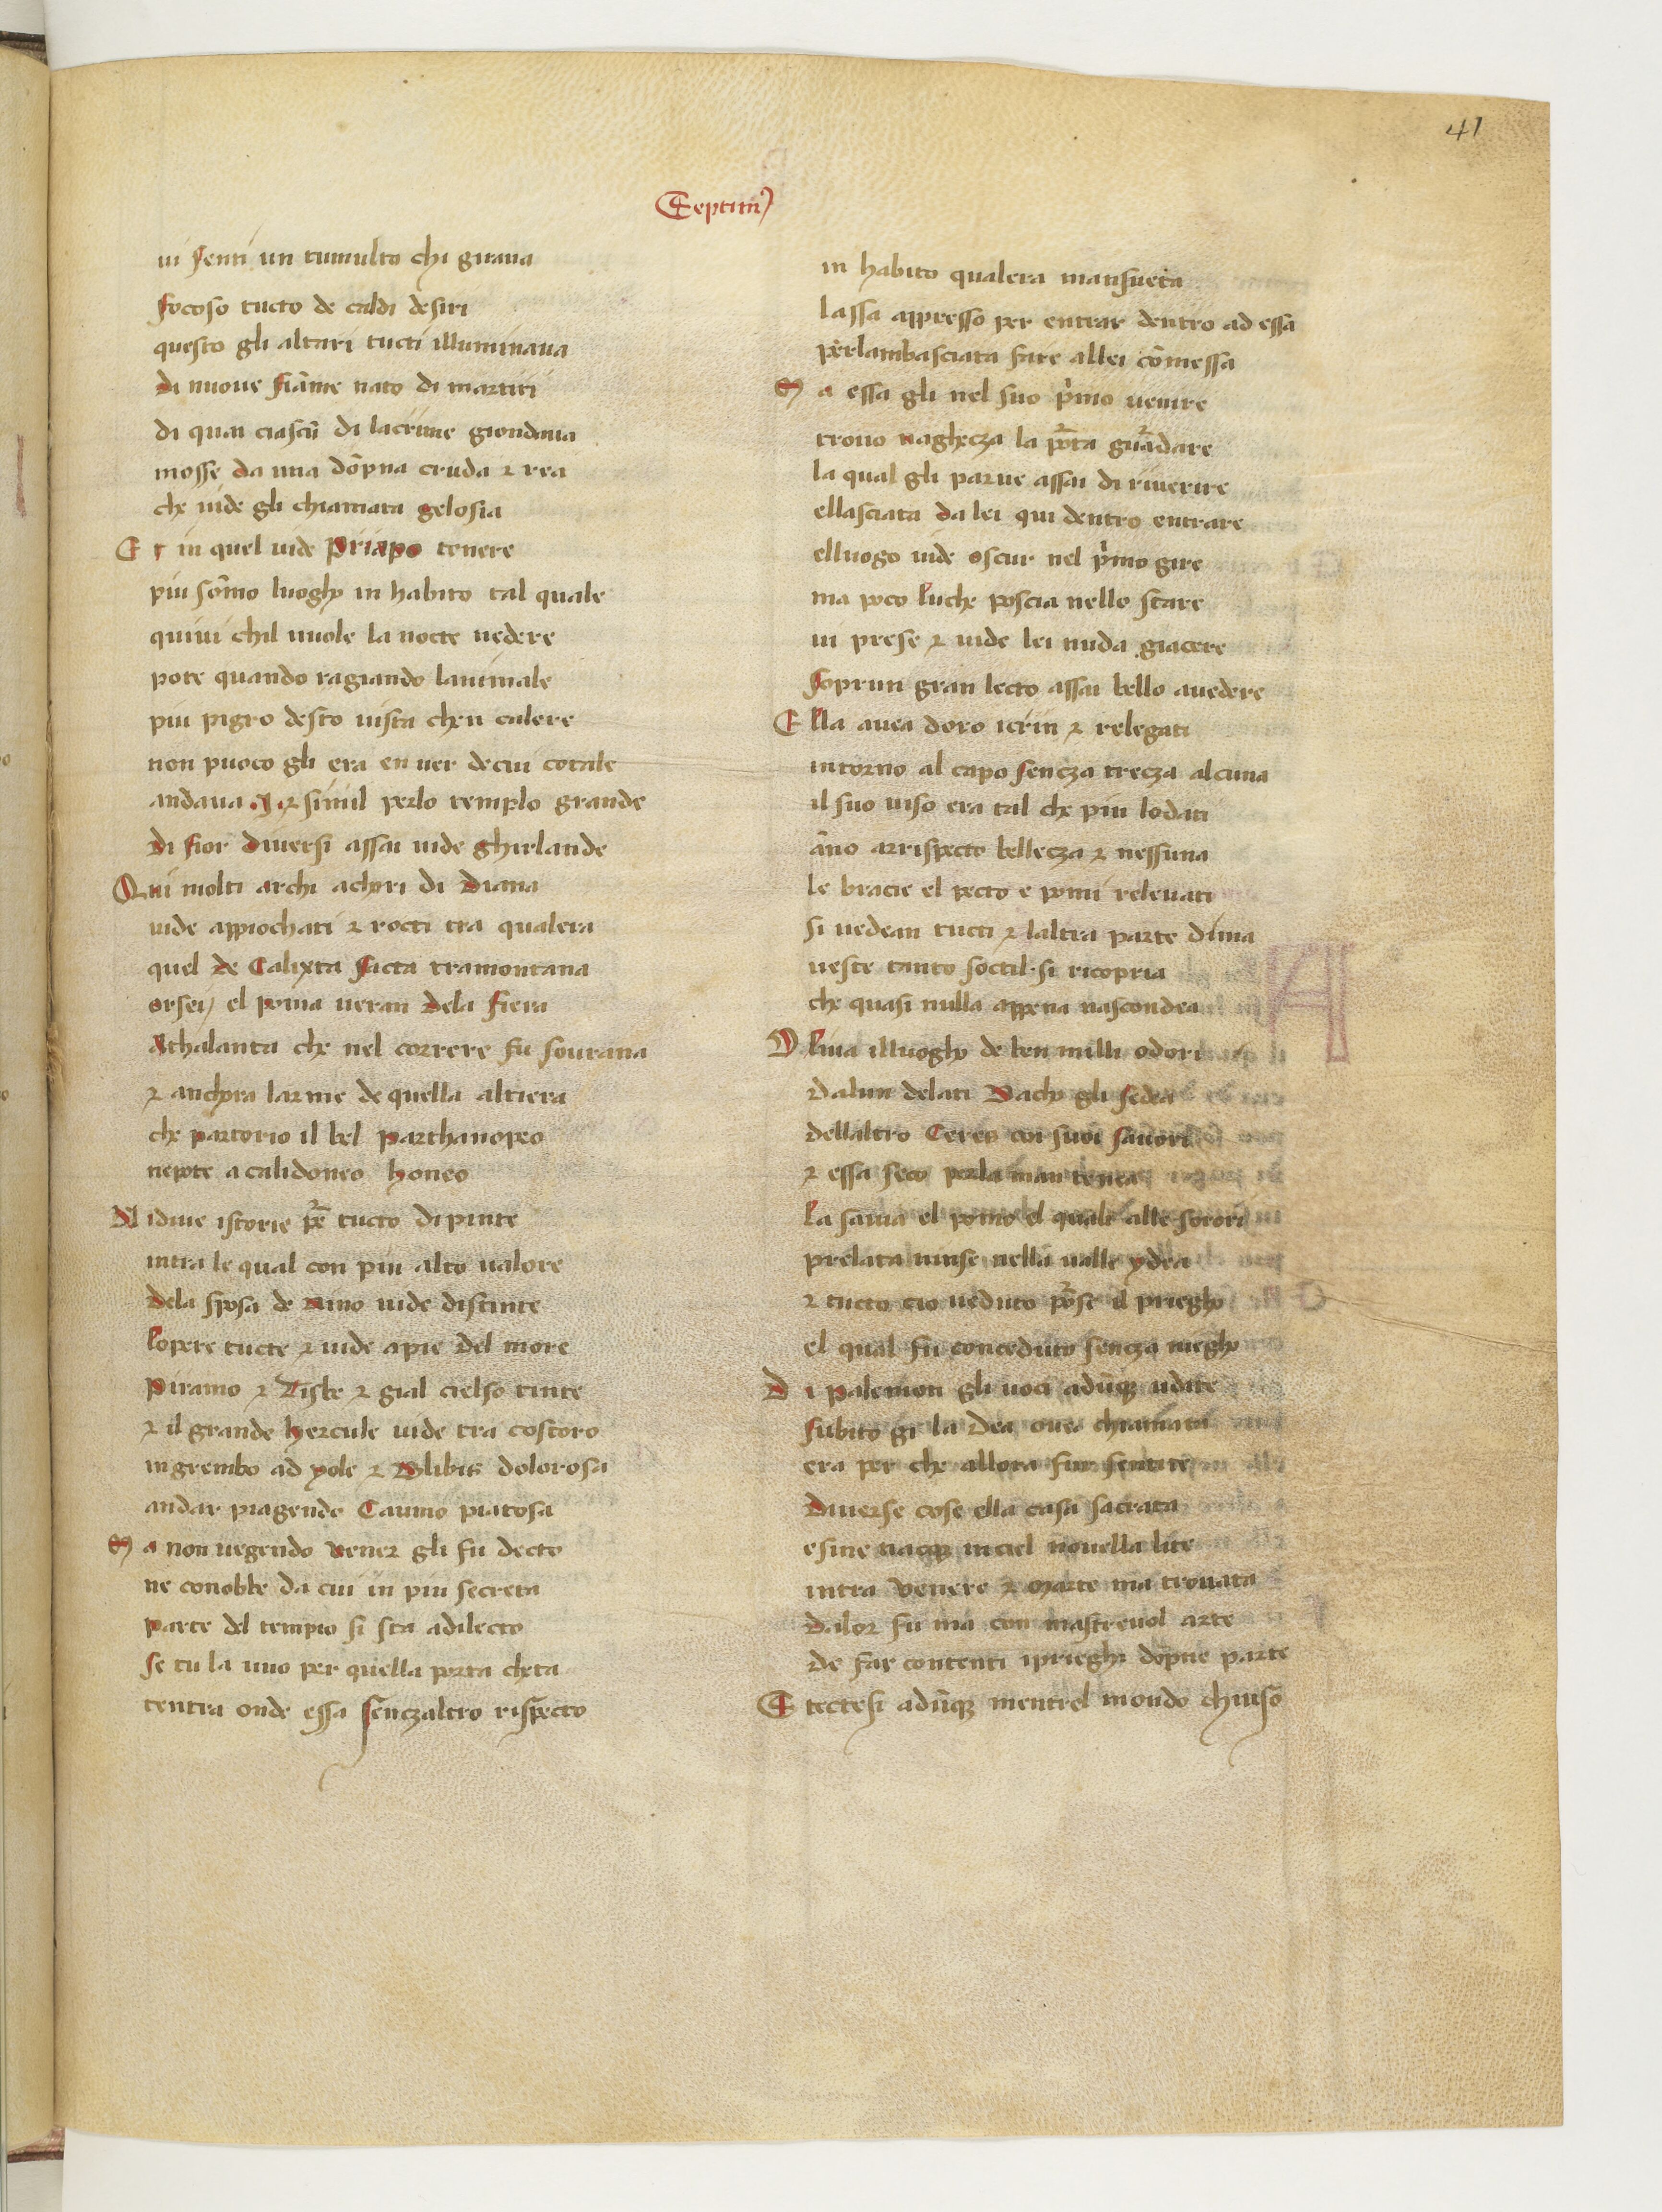 41
Septim⁹
ui senti un tumulto chi giraua
focoso tucto de caldi desiri
questo gli altari tucti illuminaua
di nuoue fiãme nato di martiri
di quai ciascũ di lacrime giondaua
mosse da una dõpna cruda ⁊ rea
che uide gli chiamata gelosia
Et in quel uide Priapo tenere
piu sõmo luogho in habito tal quale
quiui chil uuole la nocte uedere
pote quando ragiando lanimale
piu pigro desto uista chen calere
non puoco gli era en uer de cui cotale
andaua ⁊ simil perlo templo grande
di fior diuersi assai uide ghirlande
Qui molti archi achori di Diana
uide appiochati ⁊ rocti tra qualera
quel de Calixta facta tramontana
orsei el poma ueran dela fiera
Athalanta che nel correre fu sourana
⁊ anchora larme de quella altiera
che partorio il bel parthanopeo
nepote a calidoneo honeo
Vidiue istorie p̃ tucto dipinte
intra le qual con piu alto ualore
dela sposa de nino uide distinte
lopere tucte ⁊ uide apie del more
Piramo ⁊ Tisbe ⁊ gial cielso tinte
⁊ il grande hercule uide tra costoro
ingrembo ad yole ⁊ Biblis dolorosa
andar piagendo Cauno piatosa
Ma non uegendo uener gli fu decto
ne conobbe da cui in piu secreta
parte del tempio si sta adilecto
se tu la uuo per quella porta cheta
tentra onde essa senczaltro rispecto
in habito qualera mansueta
lassa appresso per entrar dentro ad essa
perlambasciata fare allei cõmessa
Ma essa gli nel suo p̃mo uenire
trouo uaghecza la p̃ta guardare
la qual gli parue assai di riuerire
ellasciata da lei qui dentro entrare
elluogo uide oscur nel p̃mo gire
ma poco luche poscia nello stare
ui prese ⁊ uide lei nuda giacere
soprun gran lecto assai bello auedere
Ella auea doro icrin ⁊ relegati
intorno al capo sencza trecza alcuna
il suo uiso era tal che piu lodati
ãno arrispecto bellecza ⁊ nessuna
le bracie el pecto e pomi releuati
si uedean tucti ⁊ laltra parte duna
ueste tanto soctil si ricopria
che quasi nulla appena nascondea
Oliua illuogho de ben milli odori
dalun delati Bacho gli sedea
dellaltro Ceres coi suoi sauori
⁊ essa seco perla man tenea
la sciua el pomo el quale alle sorori
prelata uinse nella ualle ydea
⁊ tucto cio ueduto p̃se il priegho
el qual fu conceduto sencza niegho
Di palemon gli uoci adũq; udite
subito gi la dea oue chiamata
era per che allora fur sentite
Diuerse cose ella casa sacrata
esine nacq; in ciel nouella lite
intra Venere ⁊ Marte ma trouata
dalor fu ma con mastreuol arte
de far contenti iprieghi dõpne parte
Stectesi adũq; mentrel mondo chiuso